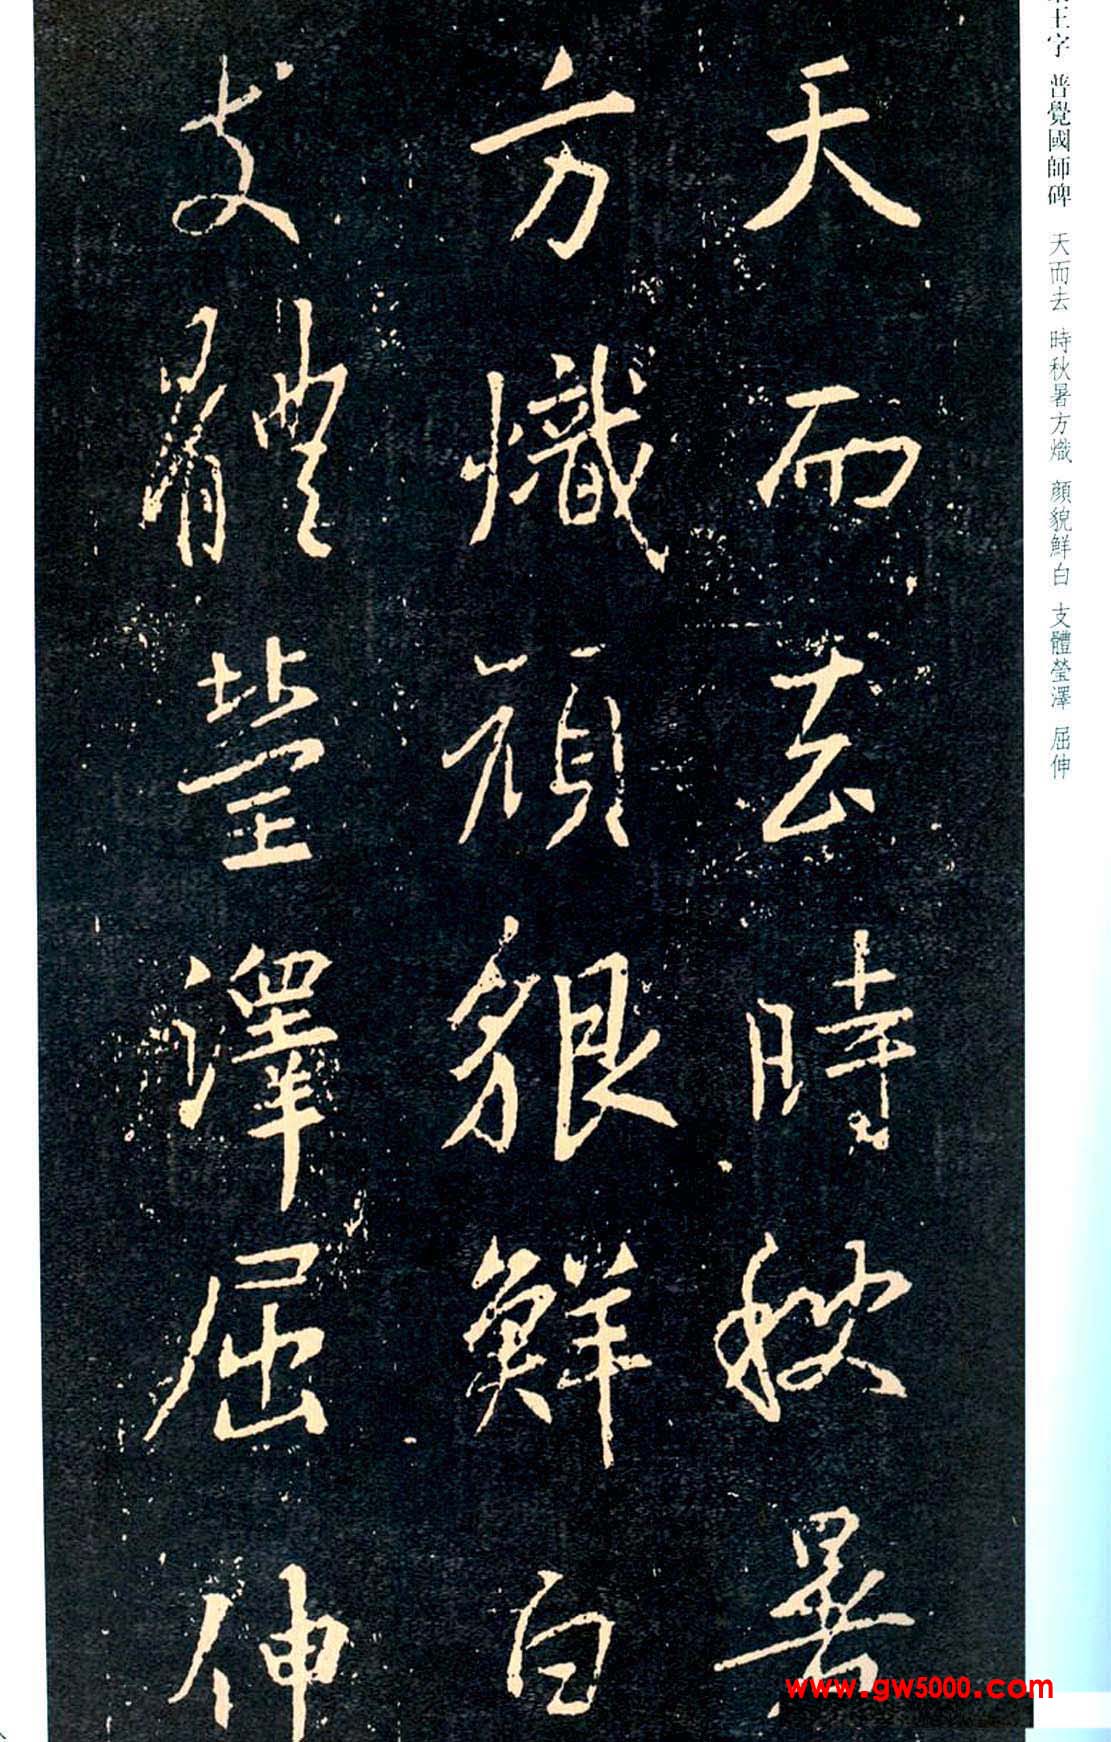 王字 普覺國師碑 天而去 時秋暑方熾 顔貌鮮白 支體瑩澤 屈伸
天而去時秋暑
方熾顔貌鮮白
支體瑩澤屈伸
www.gw5000.com